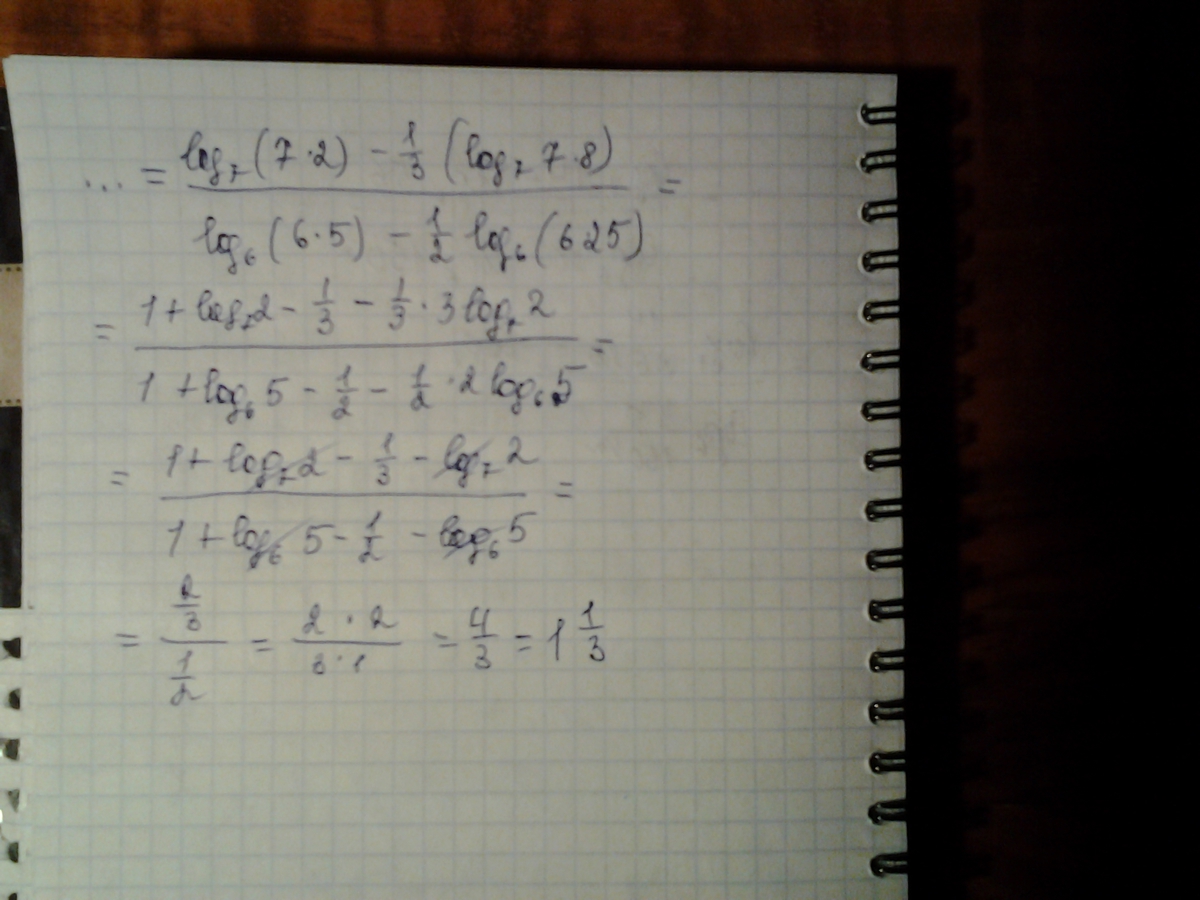 ... = log₇(7·2) - 1/3 (log₇ 7·8) / log₆(6·5) - 1/2 log₆(625) =
= 1 + log₇2 - 1/3 - 1/3 · 3 log₇2 / 1 + log₆5 - 1/2 - 1/2 · 2 log₆5 =
= 1 + log₇2 - 1/3 - log₇2 / 1 + log₆5 - 1/2 - log₆5 =
= 2/3 / 1/2 = 2 · 2 / 3 · 1 = 4/3 = 1 1/3